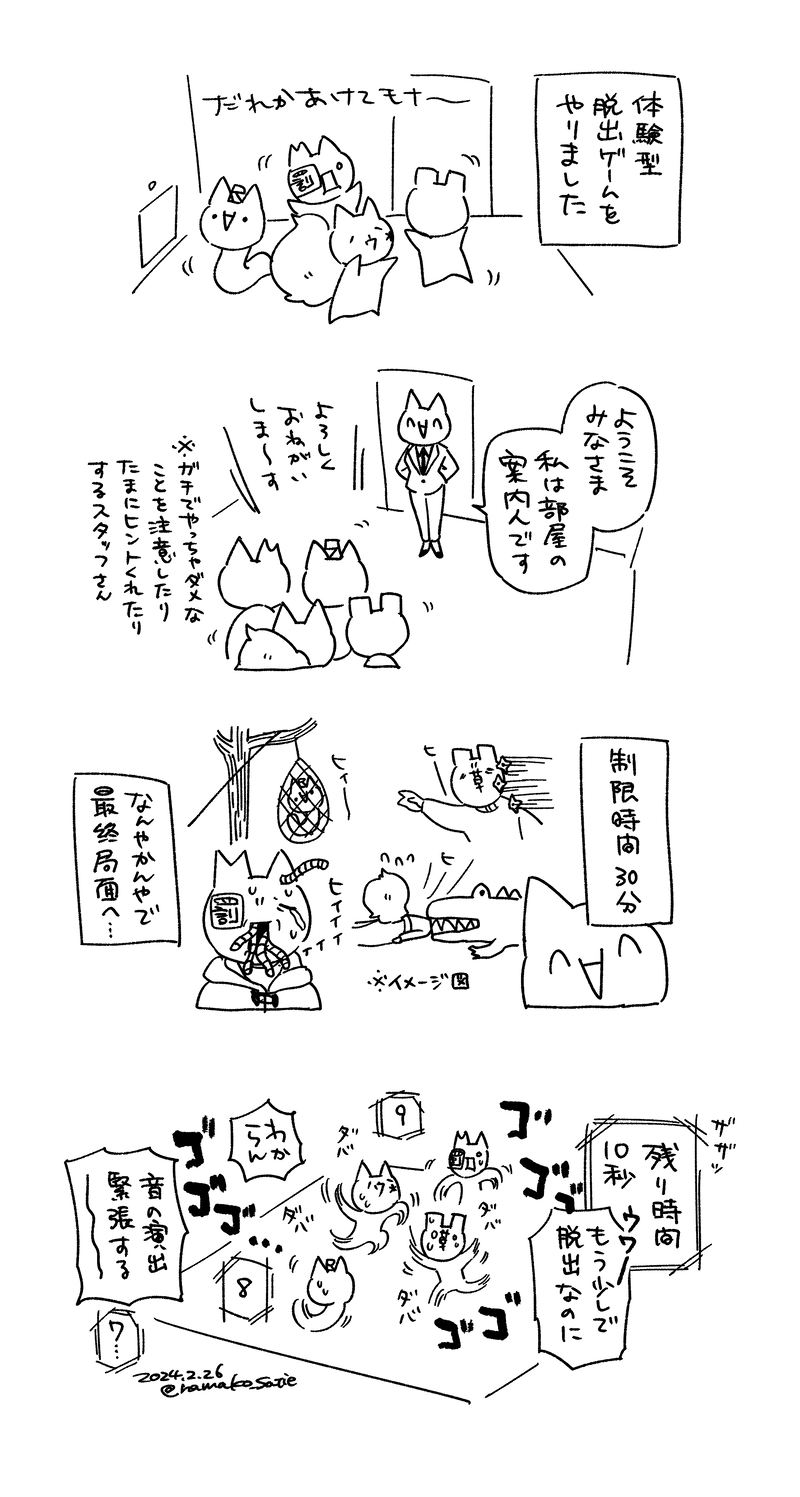 体験型
脱出ゲームを
やりました
だれかあけてモナ〜
罰
ワ
ようこそ
みなさま
私は部屋の
案内人です
よろしく
おねがい
しま〜す
※ガチでやっちゃダメな
ことを注意したり
たまにヒントくれたり
するスタッフさん
制限時間30分
ヒ
草
ヒ
ヒィー
ヒィィィィィ
罰
※イメージ図
なんやかんやで
最終局面へ…
ザザッ
残り時間
10秒
ウワー
もう少しで
脱出なのに
ゴゴゴ
9
ダバ
わか
らん
ゴゴゴ…
罰
ワ
草
ダバ
ダバ
ダバ
8
ゴゴ
音の演出
緊張する
7…
2024.2.26
@namako_satie